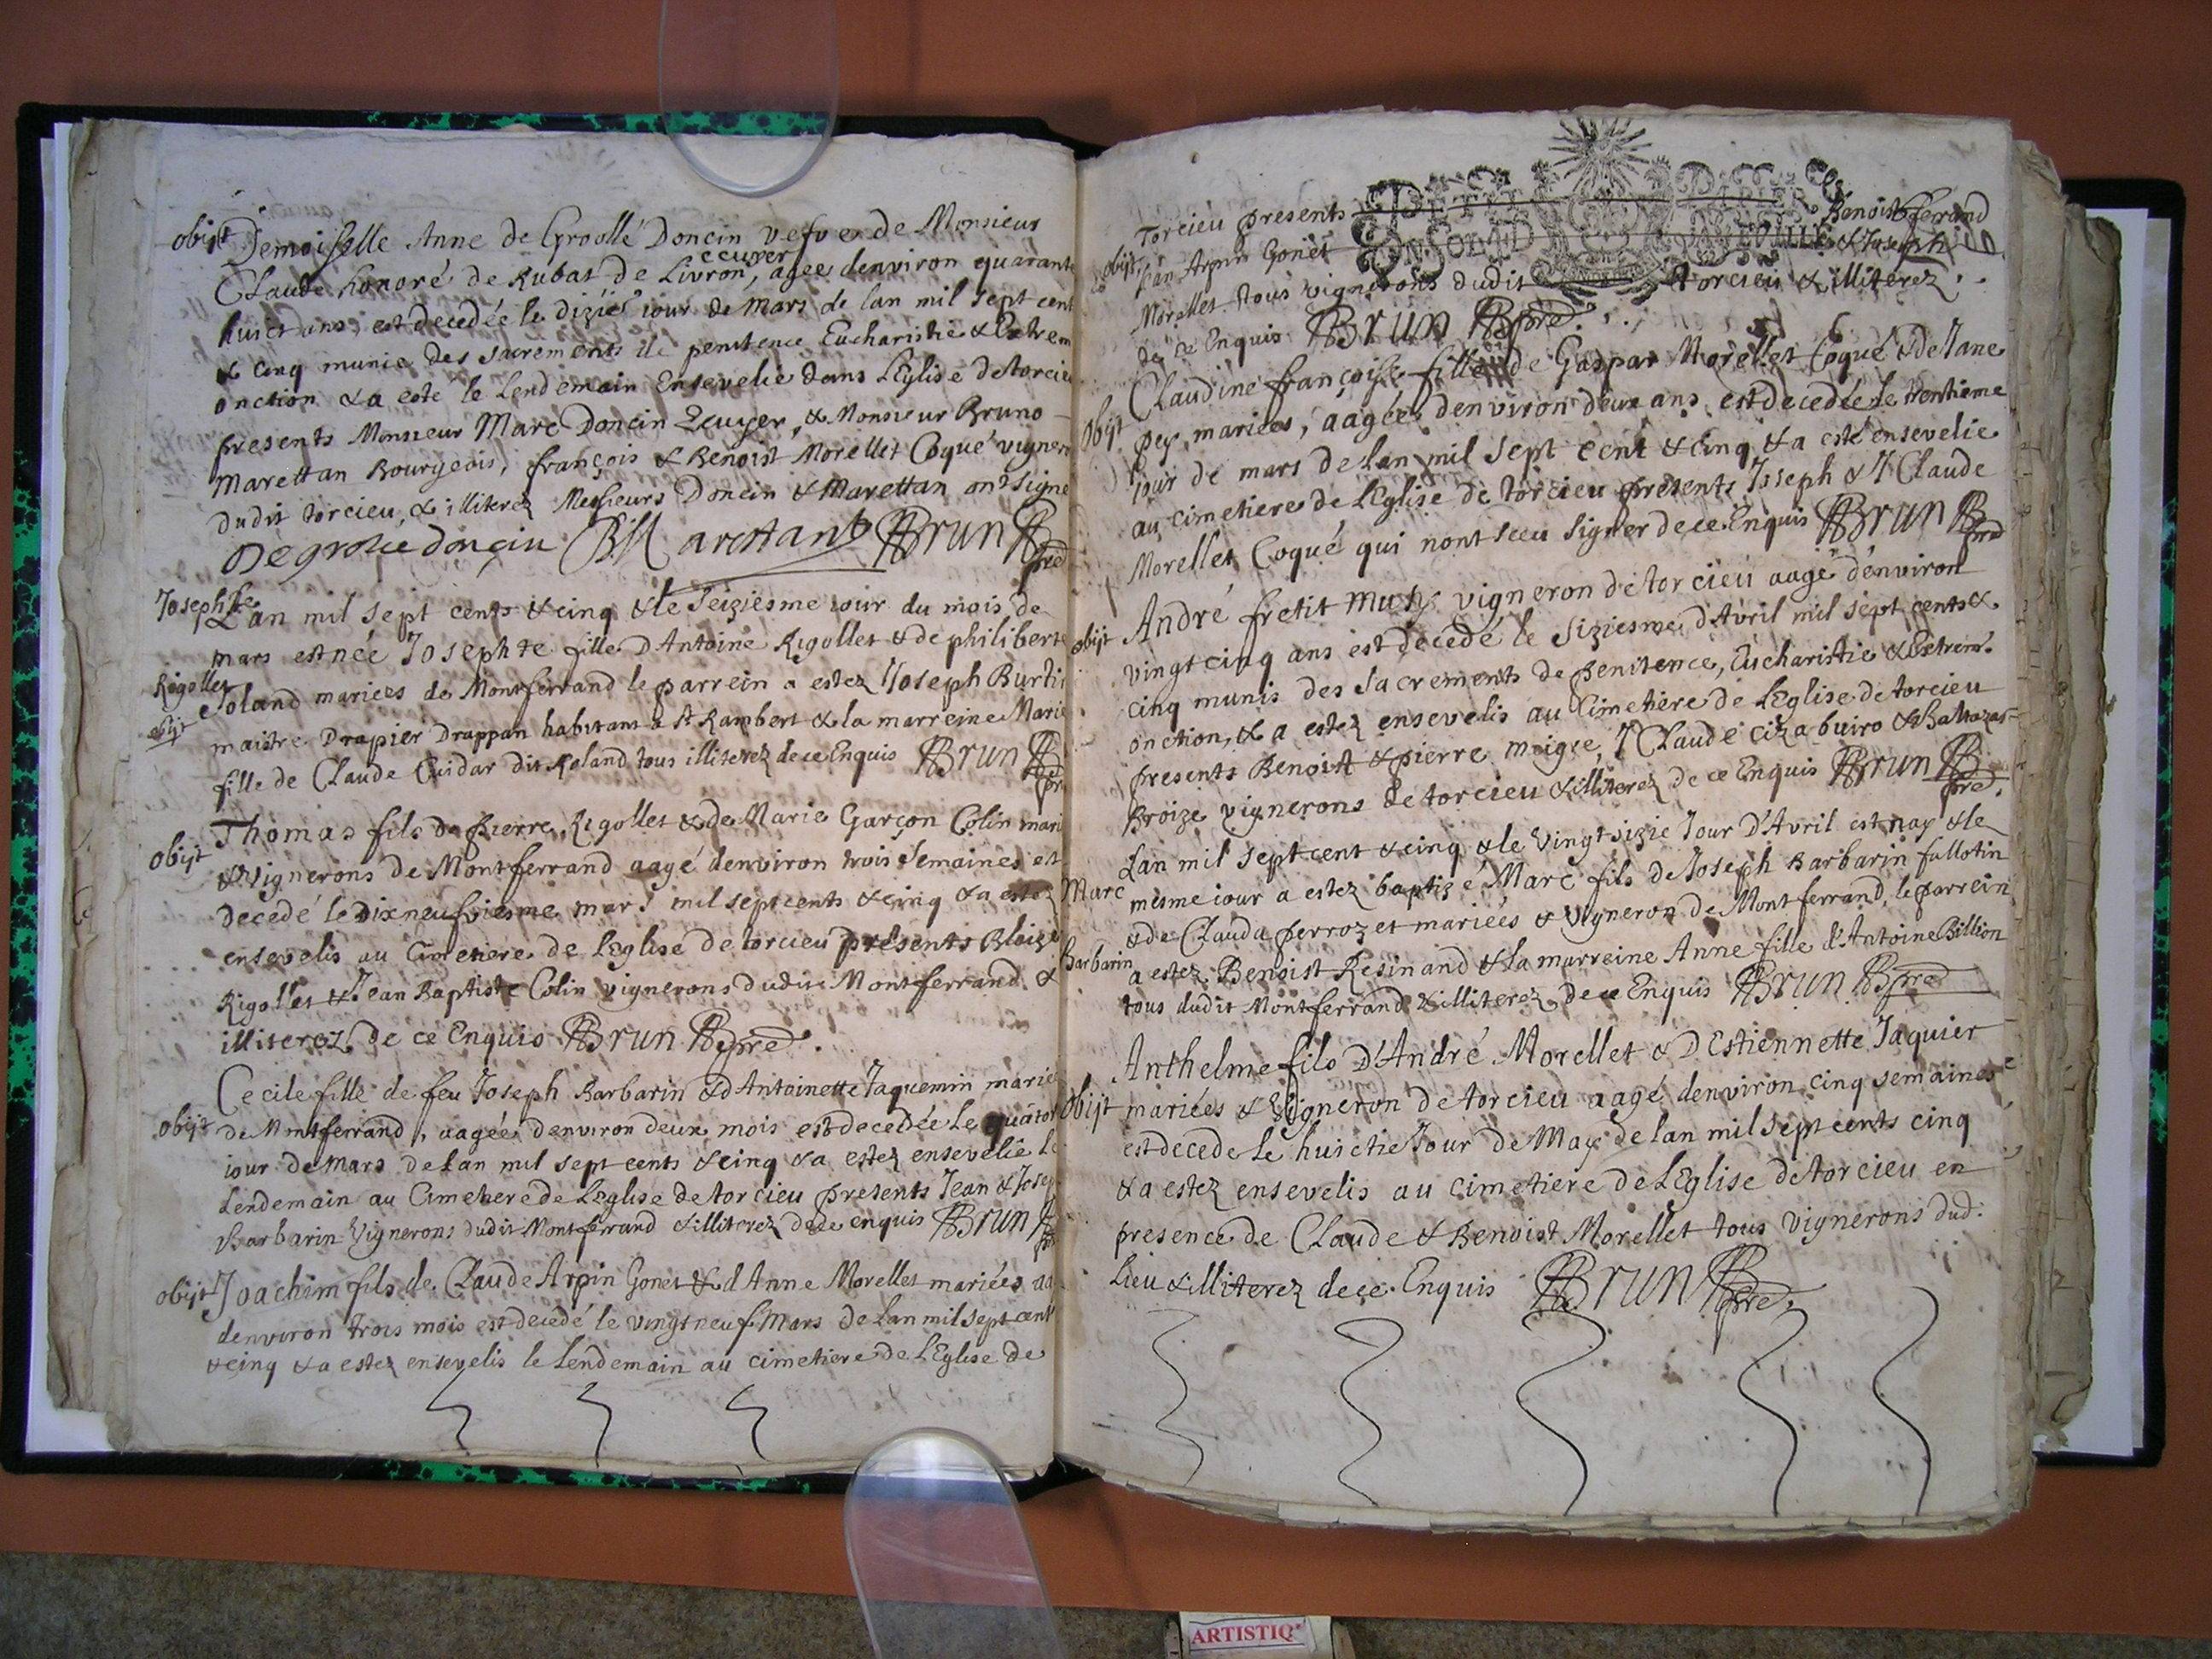 obijt Demoiselle Anne de Groollé Doncin vefve de Monsieur
ecuyer
Claude honoré de Rubat de Livron, agee denviron quarante
huict ans, est decedée le dizie iour de Mars de lan mil sept cent
& cinq munie des sacrements de penitence Eucharistie & Extrem
onction & a esté le Lendemain Ensevelie dans LEglise de torcieu
presents Monsieur Marc Doncin Ecuyer, & Monsieur Bruno
Marettan Bourgeois, françois & Benoist Morellet Coqué vigneron
dudit torcieu, & illiterez Messieurs Doncin & Marettan ont Signe
Degrolee doncin BMarettant Brun pre
Josephte Lan mil sept cents & cinq & le Seiziesme iour du mois de
mars est née Josephte fille D'Antoine Rigollet & de philiberte
Rigollet Soland mariees de Montferrand le parrein a estez Joseph Burtin
obijt maistre Drapier Drappan habitant a St Rambert & la marreine Marie
fille de Claude Cuidar dit Roland tous illiterez de ce Enquis Brun pre
Thomas fils de pierre Rigollet & de Marie Garçon Colin mari
obijt & vignerons de Montferrand aagé denviron trois Semaines est
decedé le Dixneufviesme mars mil sept cents & cinq & a estez
ensevelis au Cimetiere de Leglise de torcieu presents Bloize
Rigollet & Jean Baptiste Colin vignerons dudit Montferrand &
illiterez de ce Enquis Brun pre
Cecile fille de feu Joseph Barbarin & d'Antoinette Jaquemin marie
obijt de Montferrand, aagée denviron deux mois est decedée le quator
iour de Mars de lan mil sept cents & cinq & a estez ensevelie le
Lendemain au Cimetiere de Leglise de torcieu presents Jean & Josep
Barbarin Vignerons dudit Montferrand & illiterez de ce enquis Brun
obijt Joachim fils de Claude Arpin Gonet & d'Anne Morellet mariées aa
denviron trois mois est decedé le vingt neuf Mars de Lan mil sept cent
& cinq & a estez ensevelis le Lendemain au cimetiere de LEglise de
PETIT PAPIER
Torcieu presents Benoist ferrand
obijt Jean Arpin Gonet & Joseph
Morellet tous vignerons dudit torcieu & illiterez
de ce Enquis Brun pre
Claudine françoise fille de Gaspar Morellet Coqué & de Jane
obijt pey mariées, aagée denviron deux ans est decedée le trentieme
iour de mars de Lan mil sept cent & cinq & a esté ensevelie
au cimetiere de LEglise de torcieu presents Joseph & Claude
Morellet Coqué qui nont sceu signer de ce Enquis Brun pre
André fretit vigneron de torcieu aagé denviron
obijt vingt cinq ans est decedé le siziesme d'Avril mil sept cents &
cinq munis des Sacrements de penitence, Eucharistie & Extrem
onction, & a estez ensevelis au Cimetiere de LEglise de torcieu
presents Benoist & pierre moigre, Claude & Baltazar
Broize vignerons de torcieu & illiterez de ce Enquis Brun pre
Lan mil sept cent & cinq & le Vingt sizie Jour D'Avril est nay & le
Marc mesme iour a estez baptizé Marc fils de Joseph Barbarin fallotin
& de Clauda perrozet mariées & vigneron de Montferrand, le parrein
Barbarin a estez Benoist Resinand & la marreine Anne fille d'Antoine Billion
tous dudit Montferrand & illiterez de ce Enquis Brun pre
Anthelme fils D'André Morellet & D'Estiennette Jaquier
obijt mariées & vigneron de torcieu aagé denviron cinq semaines
est decede le huictie Jour de May de lan mil sept cents cinq
& a estez ensevelis au cimetiere de LEglise de torcieu en
presence de Claude & Benoist Morellet tous vignerons dud.
Lieu & illiterez de ce Enquis Brun pre
ARTISTIQ